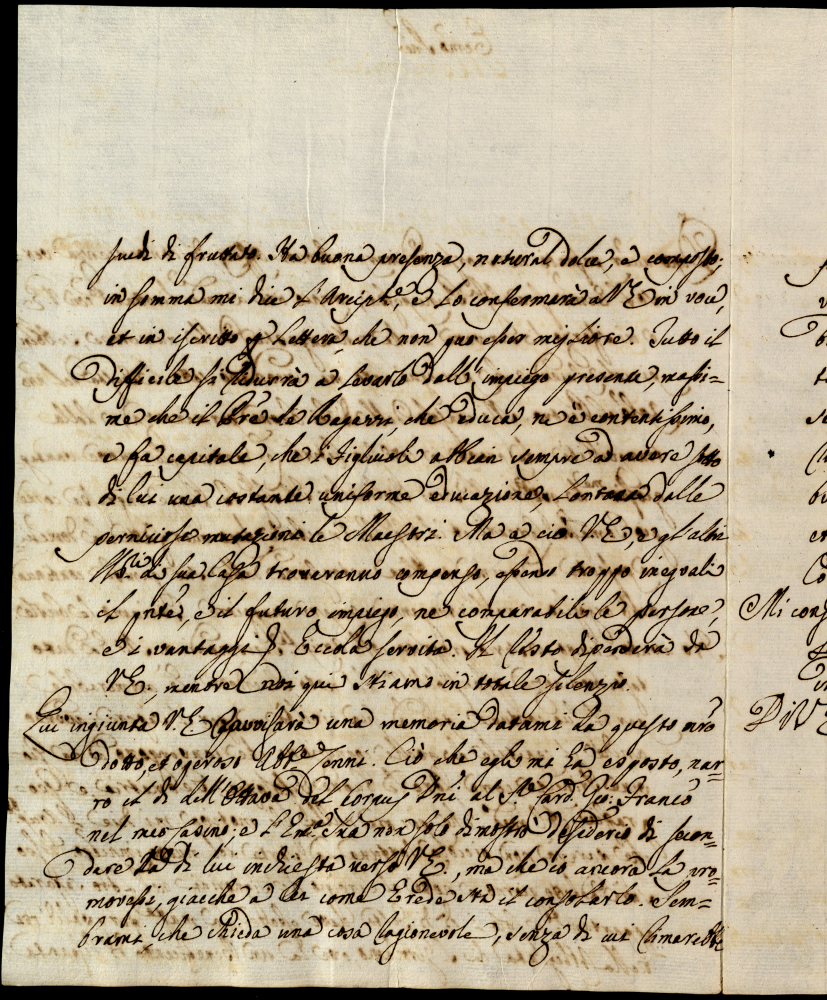 studi di fruttato. Ha buona presenza, natural dolce, e composto;
in somma mi dice l'Arcip.te, e lo confermerà a V.E. in voce,
et in iscritto p Lettera, che non può esser migliore. Tutto il
difficile si ridurrà a levarlo dall'impiego presente, massi=
me che il Pre de Ragazzi, che educa, ne è contentissimo,
e fa capitale, che i Figliuoli abbian sempre ad avere sotto
di lui una costante uniforme educazione, lontana dalle
perniciose mutazioni de Maestri. Ma a ciò V.E., e gl'altri
N.bli di sua Casa troveranno compenso, essendo troppo ineguali
il pnte, e il futuro impiego, ne comparabili le persone,
e i vantaggi. Eccola servita. Il resto dipenderà da
V.E., mentre noi qui stiamo in totale silenzio.
Qui ingiunta V.E. ravviserà una memoria datami da questo nro
dotto, et operoso Abb.e Zenni. Ciò che egli mi ha esposto, nar=
rò il dì dell'Ottava del Corpus Dni al S.r Card. Gio: Franco
nel meo Casino; e l'Em.a Sua non solo dimostrò desiderio di secon=
dare la di lui inchiesta verso V.E., ma che io ancora la pro=
movessi, giacche a lei come Erede sta il consolarlo. Sem=
brami, che chieda una cosa ragionevole, senza di cui rimarebbe
Mi cons
Di V.E